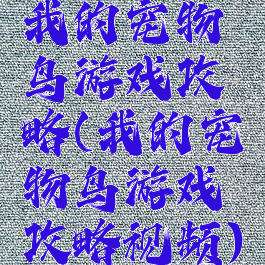 我的宠物
鸟游戏攻
略(我的宠
物鸟游戏
攻略视频)